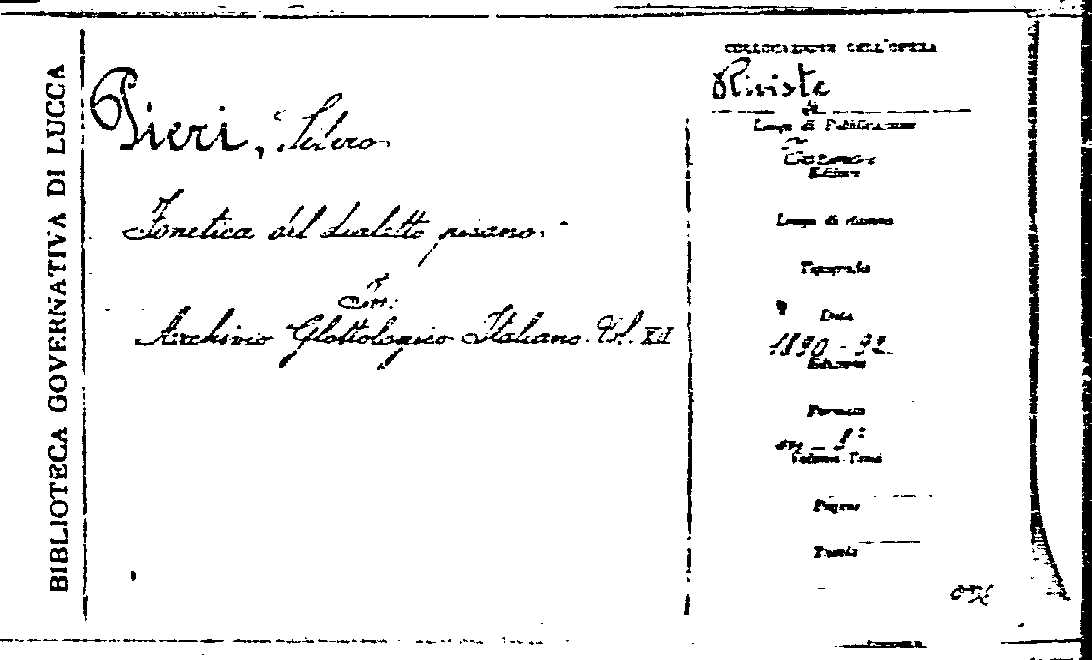 BIBLIOTECA GOVERNATIVA DI LUCCA
Pieri, Silvio
Fonetica del dialetto pisano.
In:
Archivio Glottologico Italiano. Vol. XII
COLLOCAZIONE DELL'OPERA
Riviste
Luogo di Pubblicazione
Torino
Editore
Luogo di stampa
Tipografia
Data
1890-92
Edizione
Formato
in-8°
Volume Tomi
Pagine
Tavole